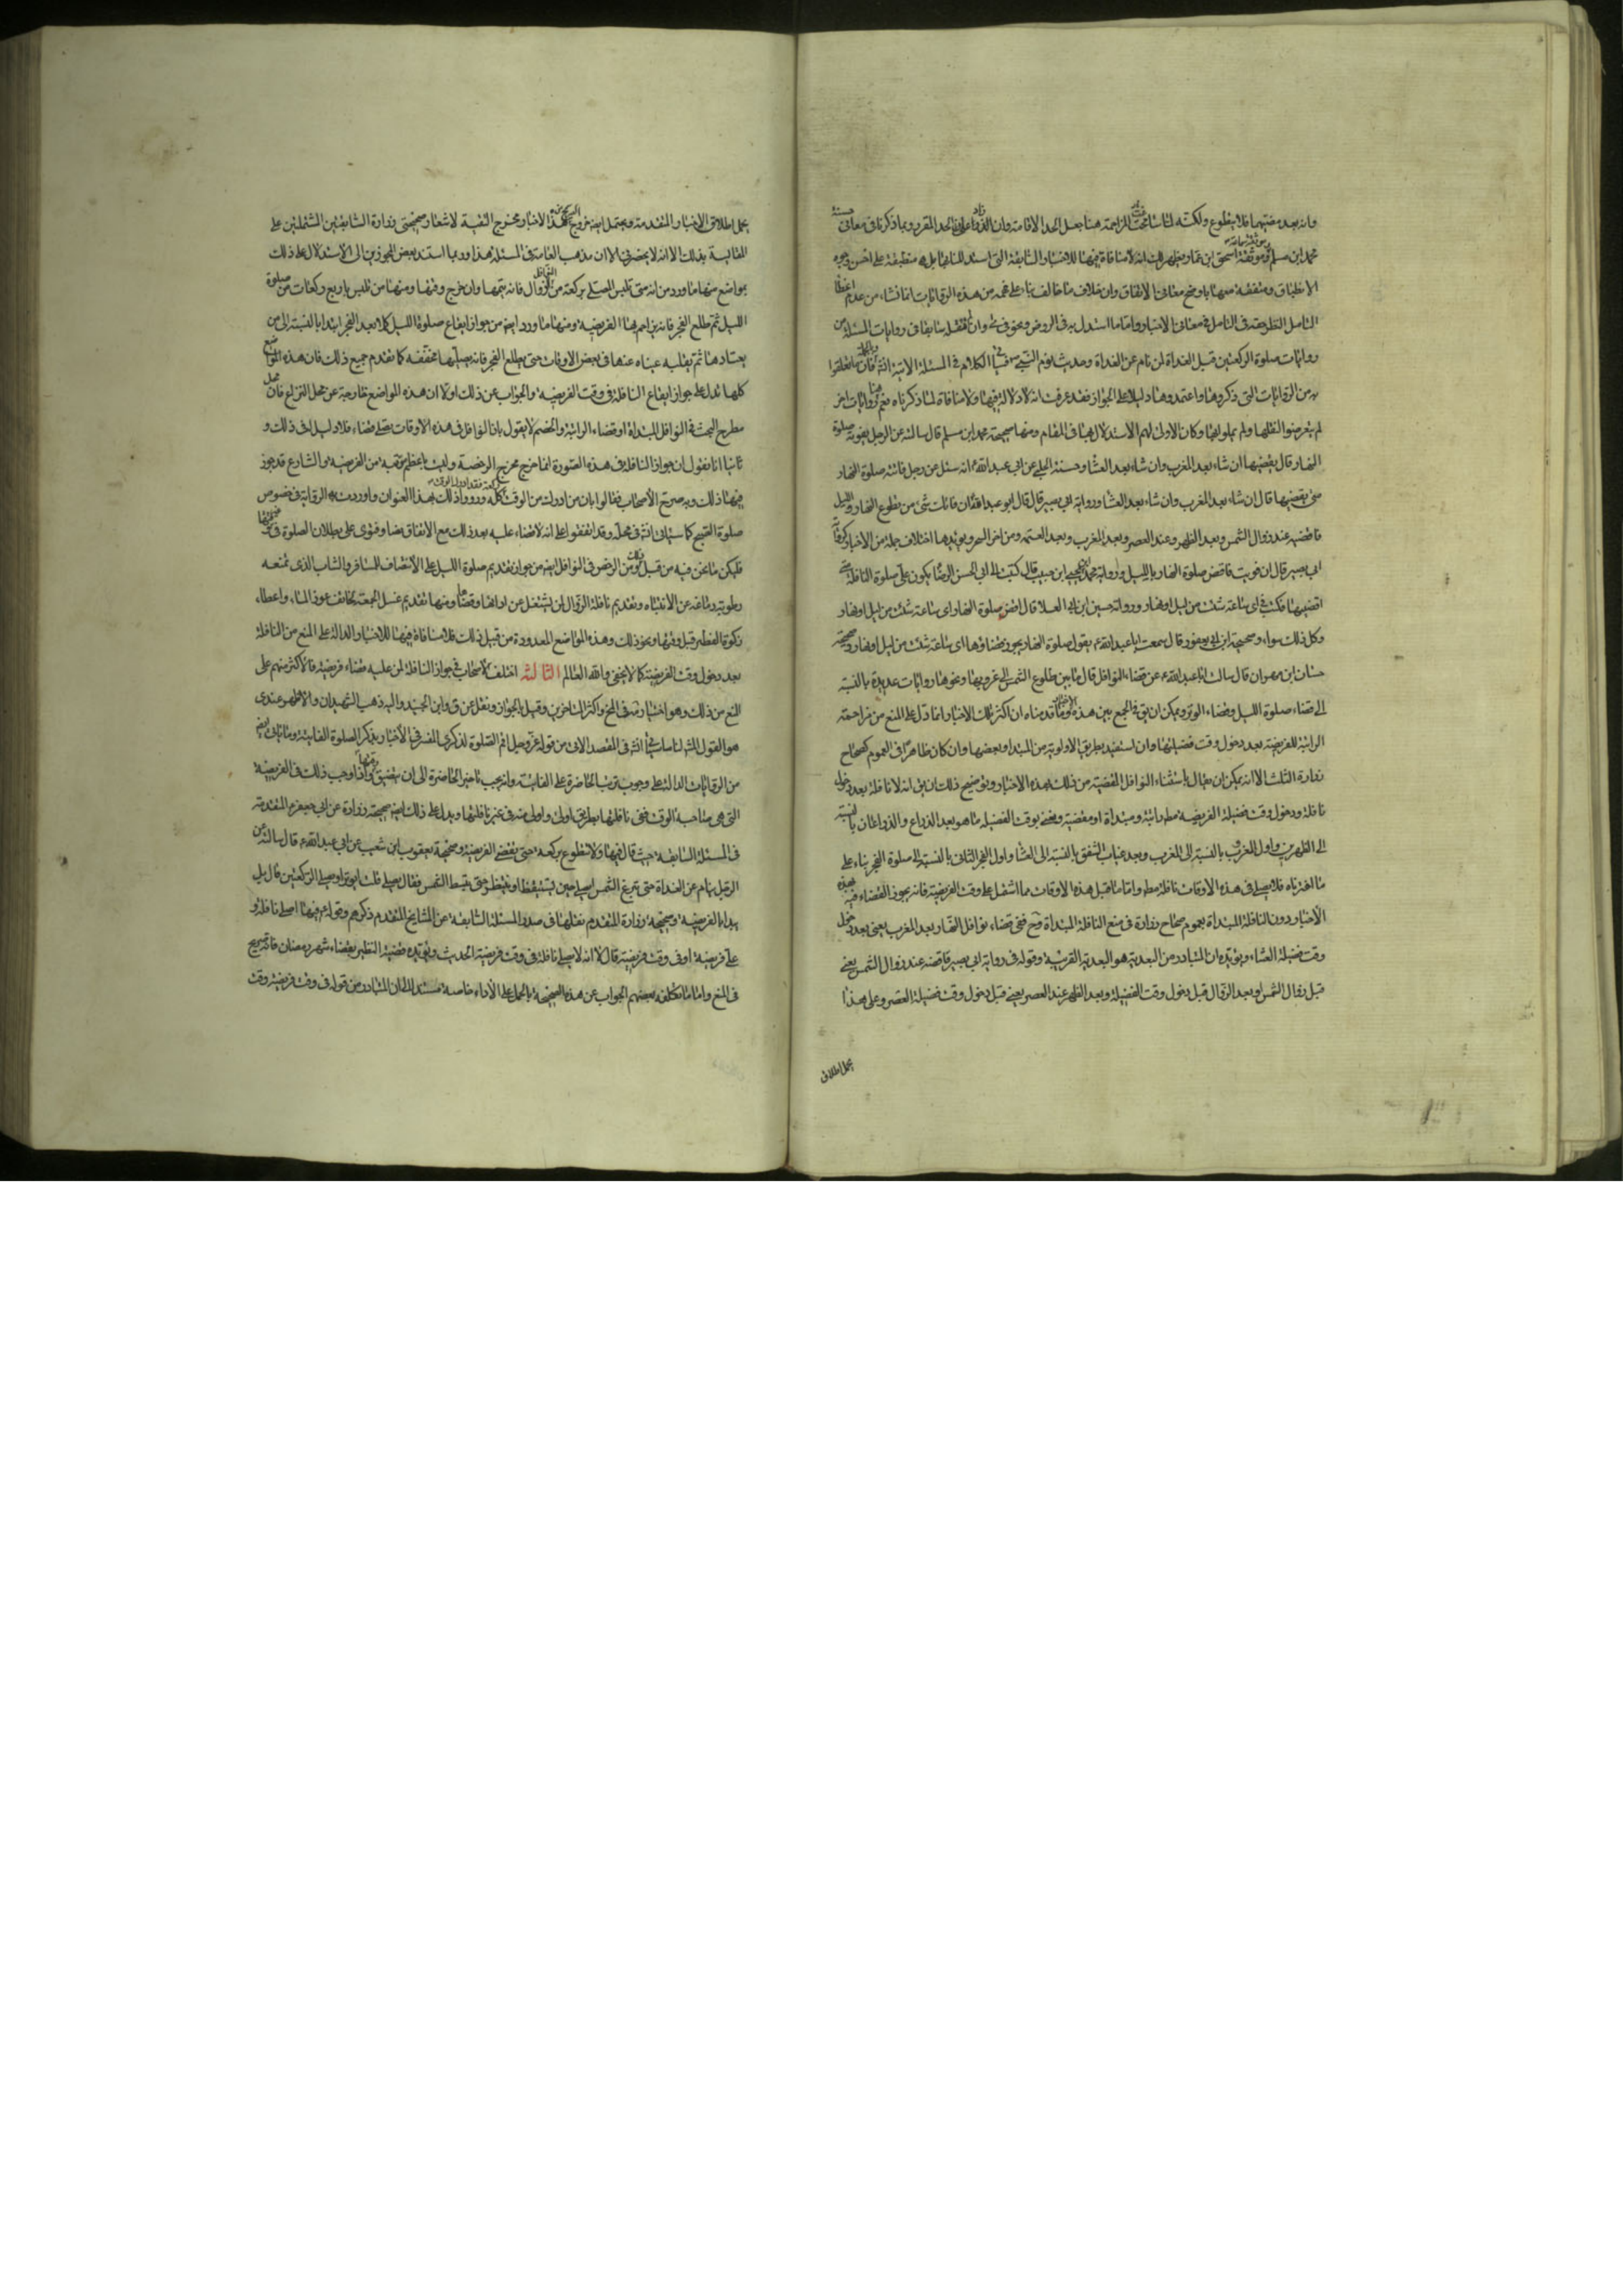 وانه بعد مضيهما فلا يتطوع ولكنه لما سامحت المزاحمة هنا جعل الحد الاقامة وان الذراع اول الحد المقرر وبما ذكرنا في معاني حسنة
محمد ابن مسلم وموثقة اسحق ابن عمار يظهر لك انه لا منافاة فيها للاخبار السابقة التي استدللنا بها بل هي منطبقة على احسن وجوه
الانطباق ومتفقة معها باوضح معاني الاتفاق وان خلاف ما خالف بناء على فهمه من هذه الروايات انما نشاء من عدم اعطاء
التامل النظر حقه في التامل في معاني الاخبار واما ما استدل به في الروض ونحوه في وان فقله سابقا في روايات المسئلة من
روايات صلوة الركعتين قبل الغداة لمن نام عن الغداة وحديث نوم النبي ص فسياتي الكلام في المسئلة الاتية انش وبالجملة فان ما تعلقوا
به من الروايات التي ذكروها واعتمدوها دليلا على الجواز فقد عرفت انه لا دلالة فيها ولا منافاة لما ذكرناه نعم هنا روايات اخر
لم يتعرضوا لنقلها ولم يناولوها وكان الاولى لهم الاستدلال بها في المقام ومنها صحيحة محمد ابن مسلم قال سالته عن الرجل يفوته صلوة
النهار قال يقضيها ان شاء بعد المغرب وان شاء بعد العشا وحسنة الحلبي عن ابي عبد الله ع انه سئل عن رجل فاتته صلوة النهار
متى يقضيها قال ان شاء بعد المغرب وان شاء بعد العشا ورواية ابي بصير قال قال ابو عبد الله ان فاتك شئ من تطوع النهار والليل
فاقضه عند زوال الشمس وبعد الظهر وعند العصر وبعد المغرب وبعد العتمة ومن اخر السحر ويؤيدها اختلاف جملة من الاخبار كرواية
ابي بصير قال ان فويت فاقض صلوة النهار بالليل ورواية محمد ابن يحيى ابن حبيب قال كتبت الى ابي الحسن الرضا يكون علي صلوة النافلة متى
اقضيها فكتب في اي ساعة شئت من ليل او نهار ورواية حسين ابن ابي العلا قال اقض صلوة النهار اي ساعة شئت من ليل او نهار
وكل ذلك سواء وصحيحة ابن ابي يعفور قال سمعت ابا عبد الله ع يقول صلوة النهار يجوز قضاؤها اي ساعة شئت من ليل او نهار وصحيحة
حسان ابن مهران قال سالت ابا عبد الله ع عن قضاء النوافل قال ما بين طلوع الشمس الى غروبها ونحوها روايات عديدة بالنسبة
الى قضاء صلوة الليل وقضاء الوتر ويمكن ان يق في الجمع بين هذه الاخبار وما قدمناه ان اكثر تلك الاخبار انما دل على المنع من مزاحمة
الراتبة للفريضة بعد دخول وقت فضيلتها وان استفيد بطريق الاولوية من المبتداء وبعضها وان كان ظاهرا في العموم كصحاح
زرارة الثلث الا انه يمكن ان يقال باستثناء النوافل المقضية من ذلك بهذه الاخبار وتوضيح ذلك ان يق انه لا نافلة بعد دخول
نافلة ودخول وقت فضيلة الفريضة مط راتبة ومبتداة او مقضية ونعني بوقت الفضيلة ما هو بعد الذراع والذراعان بالنسبة
الى الظهرين واول الغروب بالنسبة الى المغرب وبعد غياب الشفق بالنسبة الى العشا واول الفجر الثاني بالنسبة الى صلوة الفجر بناء على
ما اخترناه فلا يصلى في هذه الاوقات نافلة مط واما ما قبل هذه الاوقات مما اشتمل على وقت الفريضة فانه يجوز القضاء فيه بهذه
الاخبار دون النافلة المبتداة بعموم صحاح زرارة في منع النافلة المبتداة فح فمتى قضاء نوافل النهار بعد المغرب يعني بعد دخول
وقت فضيلة العشاء ويؤيده ان المتبادر من البعدية هو البعدية القريبة وقوله في رواية ابي بصير فاقضه عند زوال الشمس يعني
قبل زوال الشمس او بعد الزوال قبل دخول وقت الفضيلة وبعد الظهر عند العصر يعني قبل دخول وقت فضيلة العصر وعلى هذا
يحمل اطلاق
يحمل اطلاق الاخبار المتقدمة ويحتمل ايضا خروج هذه الاخبار مخرج التقية لاشعار صحيحتي زرارة السابقتين المشتملتين على
المقايسة بذلك الا انه لا يحضرني الان مذهب العامة في المسئلة هذا وربما استند بعض المجوزين الى الاستدلال على ذلك
بمواضع منها ما ورد من انه متى تلبس المصلي بركعة من نوافل الزوال فانه يتمها وان خرج وقتها ومنها من تلبس باربع ركعات من صلوة
الليل ثم طلع الفجر فانه يزاحم بها الفريضة ومنها ما ورد ايضا من جواز ايقاع صلوة الليل كلا بعد الفجر ابتداء بالنسبة الى من
يعتادها ثم يغلبه عيناه عنها في بعض الاوقات حتى يطلع الفجر فانه يصليها مخففة كما تقدم جميع ذلك فان هذه المواضع
كلها تدل على جواز ايقاع النافلة في وقت الفريضة والجواب عن ذلك اولا ان هذه المواضع خارجة عن محل النزاع فان محل
مطرح البحث في النوافل المبتداة او قضاء الراتبة والخصم لا يقول بان النوافل في هذه الاوقات يصلي قضاء فلا دليل في ذلك و
ثانيا انا نقول ان جواز النافلة في هذه الصورة انما خرج مخرج الرخصة وليت باعظم مرتبة من الفريضة والشارع قد جوز
فيها ذلك وبه صرح الأصحاب فقالوا بان من ادرك من الوقت ركعة فقد ادرك الوقت كله ورووا ذلك بهذا العنوان واوردت به الرواية في خصوص
صلوة الصبح كما سياتي انش في محله وقد اتفقوا على انه لا قضاء عليه بعد ذلك مع الاتفاق نصا وفتوى على بطلان الصلوة في
فليكن ما نحن فيه من قبيل ذلك ومن الرخص في النوافل ايضا من جواز تقديم صلوة الليل على الانتصاف للمسافر والشاب الذي تمنعه
رطوبة دماغه عن الانتباه وتقديم نافلة الزوال لمن يشتغل عن ادائها وقتها ومنها تقديم غسل الجمعة لخائف عوز الماء واعطاء
زكوة الفطر قبل وقتها ونحو ذلك وهذه المواضع المعدودة من قبيل ذلك فلا منافاة فيها للاخبار الدالة على المنع من النافلة
بعد دخول وقت الفريضة كما لا يخفى والله العالم الثالثة اختلف الاصحاب في جواز النافلة لمن عليه قضاء فريضة فالاكثر منهم على
المنع من ذلك وهو اختياره في المخ واكثر المتاخرين وقيل بالجواز ونقل عن ق وابن الجنيد واليه ذهب الشهيدان والاظهر عندي
هو القول المش لنا ما سياتي انش في المقصد الاتي من قوله عز وجل اقم الصلوة لذكري المفسر في الأخبار بذكر الصلوة الفايتة وما ياتي ايضا
من الروايات الدالة على وجوب ترتب الحاضرة على الفايتة وانه يجب تاخير الحاضرة الى ان يتضيق وقتها واذا وجب ذلك في الفريضة
التي هي صاحبة الوقت ففي نافلتها بطريق اولى واولى منه في غير نافلتها ويدل على ذلك ايضا صحيحة زرارة عن ابي جعفر ع المتقدمة
في المسئلة السابقة حيث قال فيها ولا يتطوع بركعة حتى يقضي الفريضة وصحيحة يعقوب ابن شعيب عن ابي عبد الله ع قال سالته عن
الرجل ينام عن الغداة حتى تبزغ الشمس ايصلي حين يستيقظ او ينتظر حتى تنبسط الشمس فقال يصلي حين يستيقظ قلت ايوتر او يصلي الركعتين قال بل
يبداء بالفريضة وصحيحة زرارة المتقدم نقلها في صدر المسئلة السابقة عن المشايخ المتقدم ذكرهم وقوله ع فيها اصلي نافلة و
علي فريضة او في وقت فريضة قال لا انه لا يصلى نافلة في وقت فريضة الحديث ويؤيده قضية التنظير بقضاء شهر رمضان فانه صريح
في المنع واما ما تكلفه بعضهم الجواب عن هذه الصحيحة بالحمل على الأداء خاصة مستندا الى ان المتبادر من قوله في وقت فريضة وقت